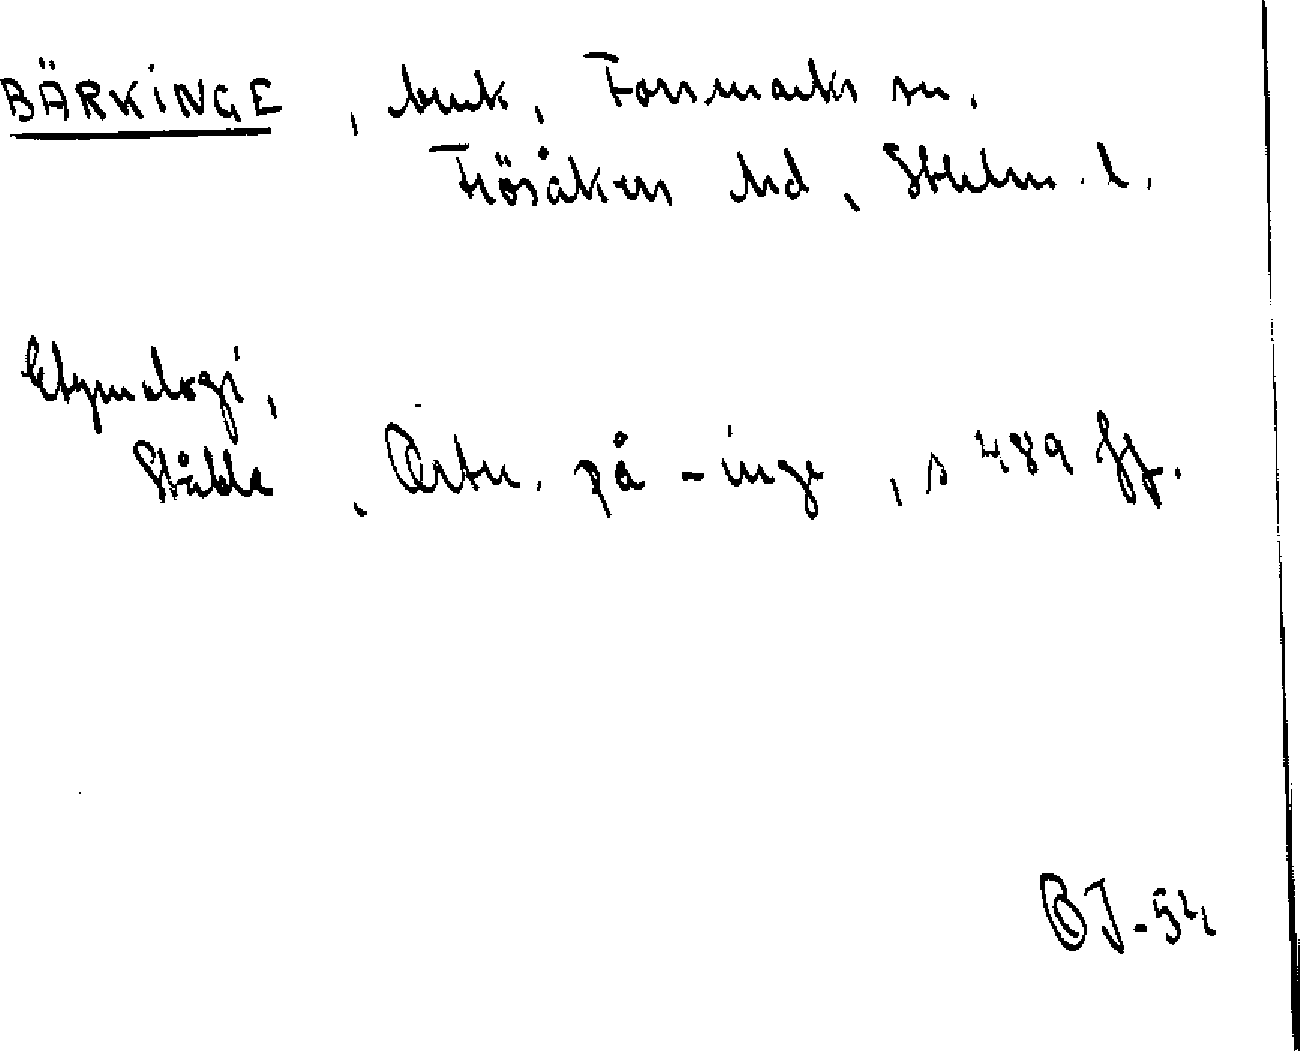 BÄRKINGE, bruk, Forsmarks sn.
Frösåkers hd, Sthlms l.
Etymologi,
Ståhle, Ortn. på -inge, s 489 ff.
BJ-54